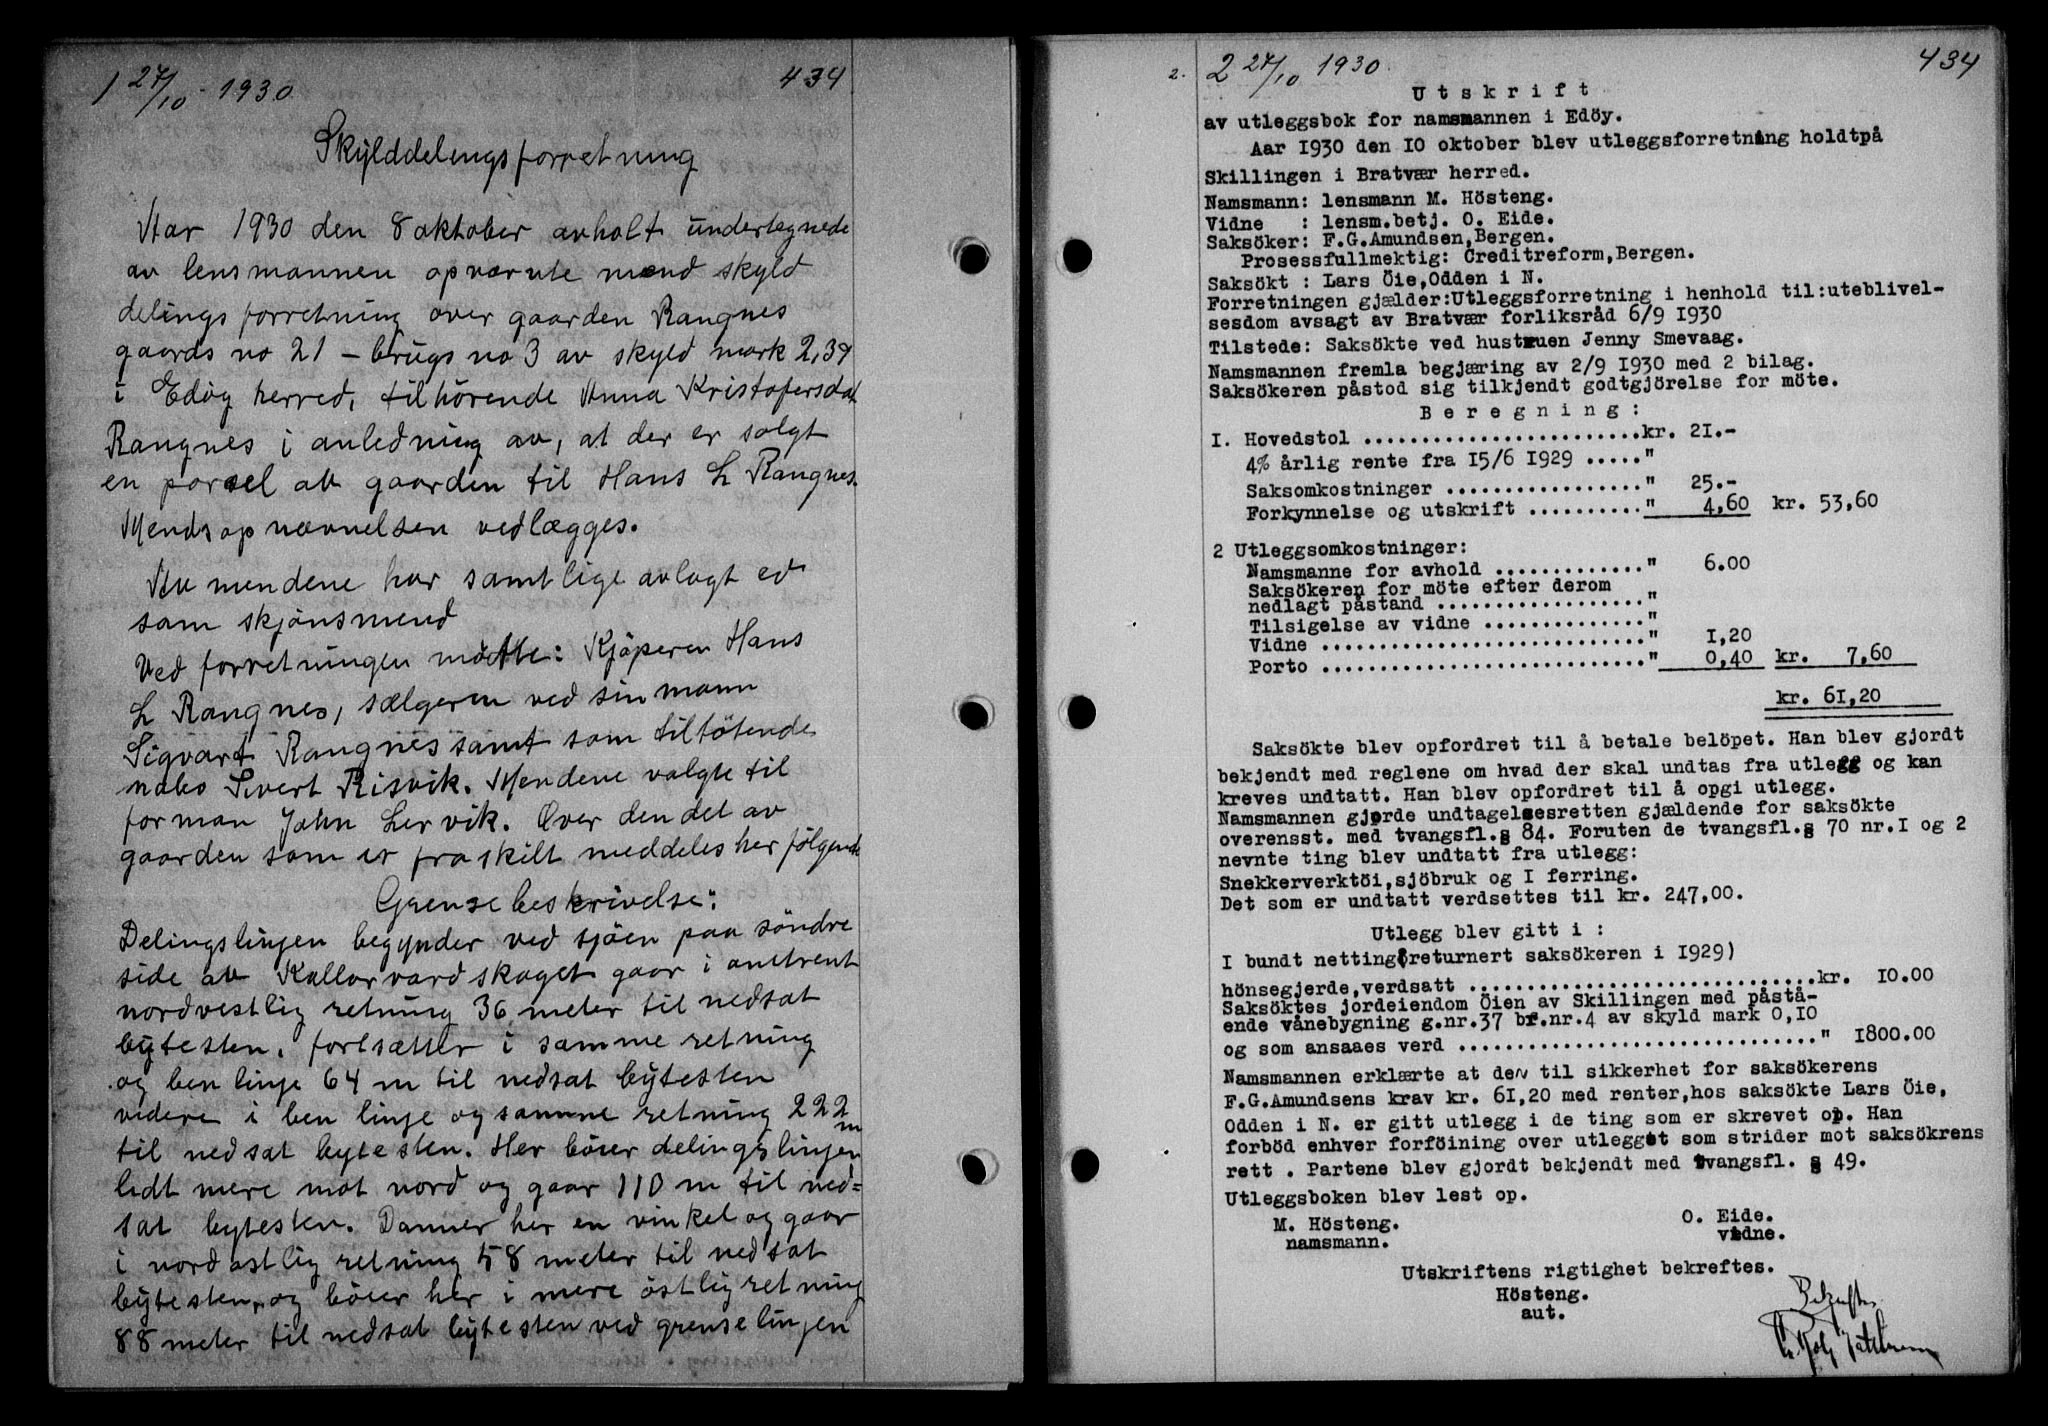 1 27/10 - 1930 434
Skylddelingsforretning
Aar 1930 den 8 oktober avholt undertegnede
av lensmannen opnævnte mænd skyld
delingsforretning over gaarden Rangnes
gaards no 21 - brugs no 3 av skyld mark 2,39
i Edöy herred, tilhörende Anna Kristofersdat
Rangnes i anledning av, at der er solgt
en parsel av gaarden til Hans L Rangnes.
Mendsopnævnelsen vedlægges.
Av mendene har samtlige avlagt ed
som skjönsmend
Ved forretningen mötte: Kjöperen Hans
L Rangnes, sælgeren ved sin mann
Sigvart Rangnes samt som tilstötende
nabo Sivert Risvik. Mendene valgte til
forman John Lervik. Over den del av
gaarden som er fraskilt meddeles her følgende
Grensebeskrivelse:
Delingslinjen begynder ved sjöen paa söndre
side av Kallarvardskaget gaar i omtrent
nordvestlig retning 36 meter til nedsat
bytesten, fortsætter i samme retning
og ben linje 64 m til nedsat bytesten
videre i ben linje og samme retning 222 m
til nedsat bytesten. Her böier delingslinjen
lidt mere mot nord og gaar 110 m til ned=
sat bytesten. Danner her en vinkel og gaar
i nordostlig retning 58 meter til nedsat
bytesten, og böier her i mere östlig retning
88 meter til nedsat bytesten ved grenselinjen
2. 2 27/10 1930 434
Utskrift
av utleggsbok for namsmannen i Edöy.
Aar 1930 den 10 oktober blev utleggsforretning holdtpå
Skillingen i Bratvær herred.
Namsmann: lensmann M. Hösteng.
Vidne : lensm.betj. O. Eide.
Saksöker: F.G.Amundsen,Bergen.
Prosessfullmektig: Creditreform,Bergen.
Saksökt : Lars Öie,Odden i N.
Forretningen gjælder:Utleggsforretning i henhold til:uteblivel-
sesdom avsagt av Bratvær forliksråd 6/9 1930
Tilstede: Saksökte ved hustruen Jenny Smevaag.
Namsmannen fremla begjæring av 2/9 1930 med 2 bilag.
Saksökeren påstod sig tilkjendt godtgjörelse for möte.
Beregning:
I. Hovedstol ........................kr. 21.-
4% årlig rente fra 15/6 1929 ....."
Saksomkostninger ................." 25.-
Forkynnelse og utskrift .........." 4,60 kr. 53,60
2 Utleggsomkostninger:
Namsmanne for avhold ............." 6.00
Saksökeren for möte efter derom
nedlagt påstand .................."
Tilsigelse av vidne .............."
Vidne ............................" 1,20
Porto ............................" 0,40 kr. 7,60
kr. 61,20
Saksökte blev opfordret til å betale belöpet. Han blev gjordt
bekjendt med reglene om hvad der skal undtas fra utlegg og kan
kreves undtatt. Han blev opfordret til å opgi utlegg.
Namsmannen gjorde undtagelsesretten gjældende for saksökte
overensst. med tvangsfl.§ 84. Foruten de tvangsfl.§ 70 nr.I og 2
nevnte ting blev undtatt fra utlegg:
Snekkerverktöi,sjöbruk og I ferring.
Det som er undtatt verdsettes til kr. 247,00.
Utlegg blev gitt i :
I bundt netting(returnert saksökeren i 1929)
hönsegjerde,verdsatt ..............................kr. 10.00
Saksöktes jordeiendom Öien av Skillingen med påstå-
ende vånebygning g.nr.37 br.nr.4 av skyld mark 0,10
og som ansaaes verd ..............................." 1800.00
Namsmannen erklærte at den til sikkerhet for saksökerens
F.G.Amundsens krav kr. 61,20 med renter,hos saksökte Lars Öie,
Odden i N. er gitt utlegg i de ting som er skrevet op. Han
forböd enhver forföining over utlegget som strider mot saksökrens
rett . Partene blev gjordt bekjendt med tvangsfl. § 49.
Utleggsboken blev lest op.
M. Hösteng. O. Eide.
namsmann. vidne.
Utskriftens rigtighet bekreftes.
Hösteng.
aut.
Bekreftes